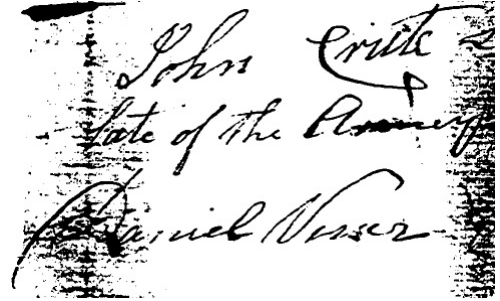 John Crute
late of the Army
Daniel Visser